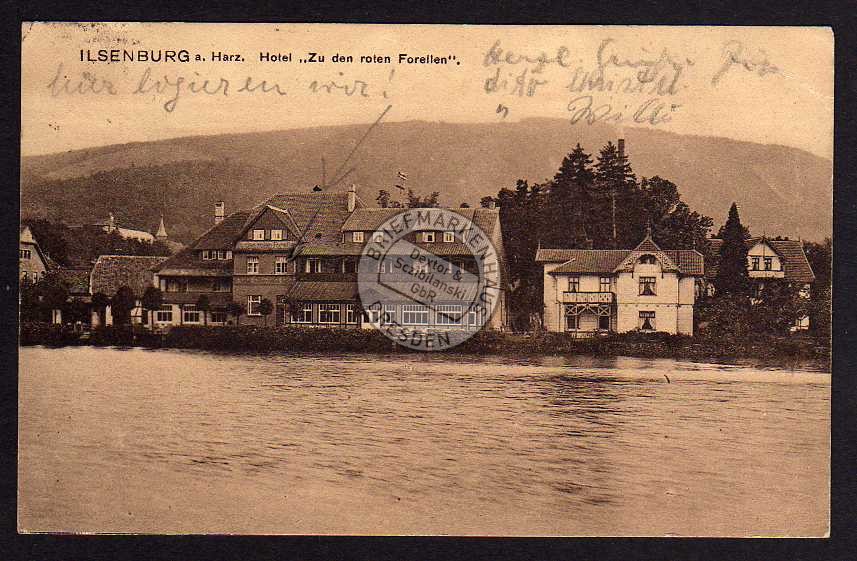 ILSENBURG a. Harz. Hotel „Zu den roten Forellen“.
hier logieren wir!
Herzl. Grüße
dito
" Willi
BRIEFMARKENHAUS
Dextor &
Scziollanski
GbR
DRESDEN